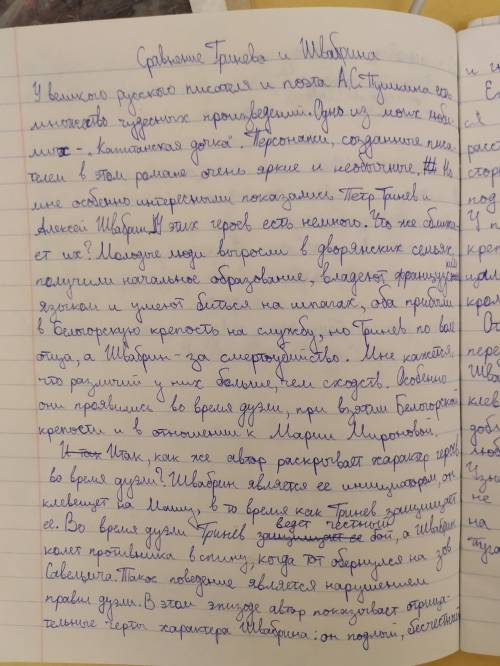 Сравнение Гринева и Швабрина
У великого русского писателя и поэта А.С.Пушкина есть
множество чудесных произведений. Одно из моих люби-
мых - „Капитанская дочка". Персонажи, созданные писа-
телем в этом романе очень яркие и необычные. Но
мне особенно интересными показались Петр Гринев и
Алексей Швабрин. У этих героев есть немного. Что же сближа-
ет их? Молодые люди выросли в дворянских семьях,
получили начальное образование, владеют французским
языком и умеют биться на шпагах, оба прибыли
в Белогорскую крепость на службу, но Гринев по воле
отца, а Швабрин - за смертоубийство. Мне кажется,
что различий у них больше, чем сходств. Особенно
они проявились во время дуэли, при взятии Белогорской
крепости и в отношении к Марии Мироновой.
И так Итак, как же автор раскрывает характер героев
во время дуэли? Швабрин является ее инициатором, он
клевещет на Машу, в то время как Гринев защищает
ее. Во время дуэли Гринев защищает ее ведет честный бой, а Швабрин
колет противника в спину, когда тот обернулся на зов
Савельича. Такое поведение является нарушением
правил дуэли. В этом эпизоде автор показывает отрица-
тельные черты характера Швабрина: он подлый, бесчестный
и
Е
ся
расст
сторо
под
У п
креп
цал
кром
От
пере
Шва
клев
доб
люб
Узна
не
на